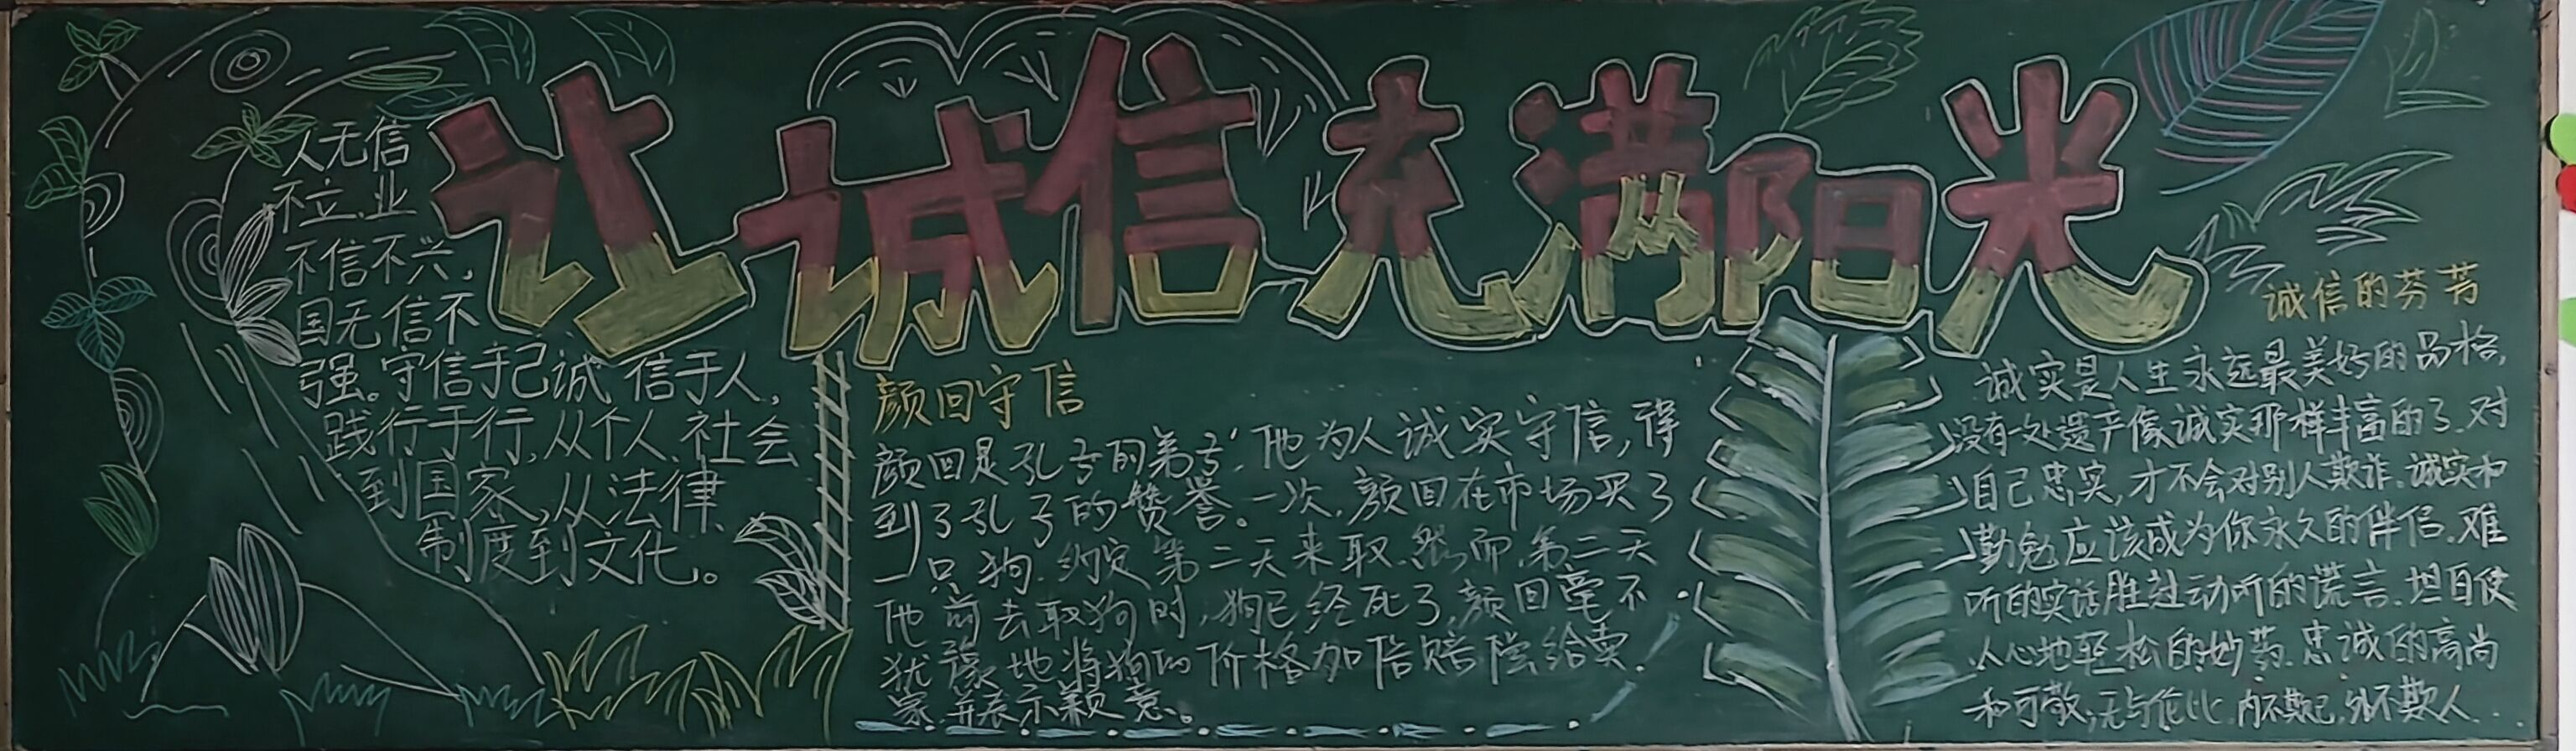 让诚信充满阳光
人无信
不立,业
不信不兴,
国无信不
强。守信于己诚 信于人,
践行于行,从个人,社会
到国家,从法律
制度到文化。
颜回守信
颜回是孔子的弟子,他为人诚实守信,得
到了孔子的赞誉。一次,颜回在市场买了
一只狗,约定第二天来取.然而,第二天
他前去取狗时,狗已经死了,颜回毫不
犹豫地将狗的价格加倍赔偿给卖
家,并表示歉意。
诚信的芬芳
诚实是人生永远最美好的品格,
没有一处遗产像诚实那样丰富的了.对
自己忠实,才不会对别人欺诈.诚实和
勤勉应该成为你永久的伴侣.难
听的实话胜过动听的谎言.坦白使
人心地轻松的妙药.忠诚的高尚
和可敬,无与伦比.内不欺己,外不欺人...